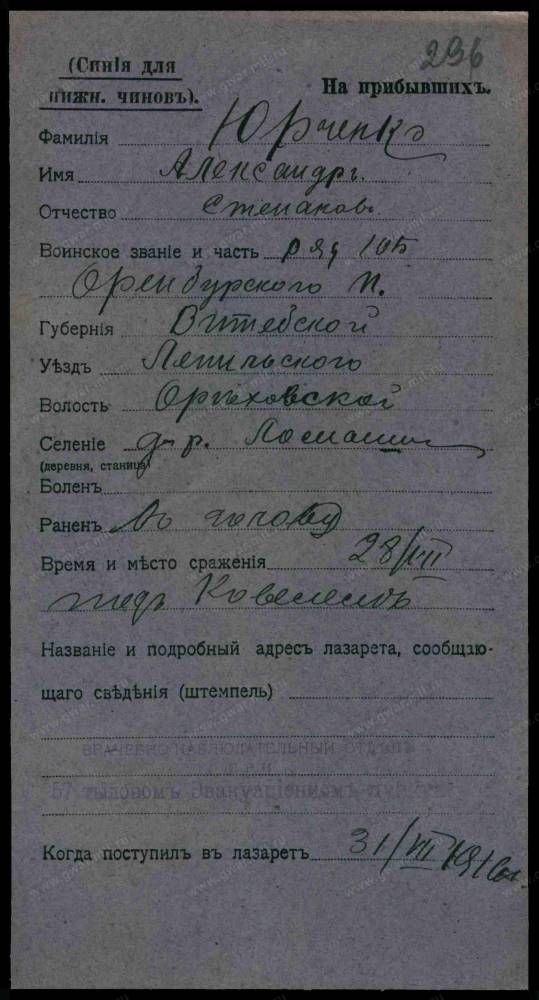 296
(Синія для
нижн. чиновъ).
На прибывшихъ.
Фамилія Юрченко
Имя Александръ
Отчество Степанов.
Воинское званіе и часть ряд 105
Оренбурского п.
Губернія Витебской
Уѣздъ Лепильского
Волость Орѣховской
Селеніе д-р.
(деревня, станица)
Боленъ
Раненъ въ голову
Время и мѣсто сраженія 28/VII
подъ Ковелемъ
Названіе и подробный адресъ лазарета, сообщаю-
щаго свѣдѣнія (штемпель)
ВРАЧЕБНО НАБЛЮДАТЕЛЬНЫЙ
57 тыловомъ Эвакуаціонномъ
Когда поступилъ въ лазаретъ 31/VII 1916г.